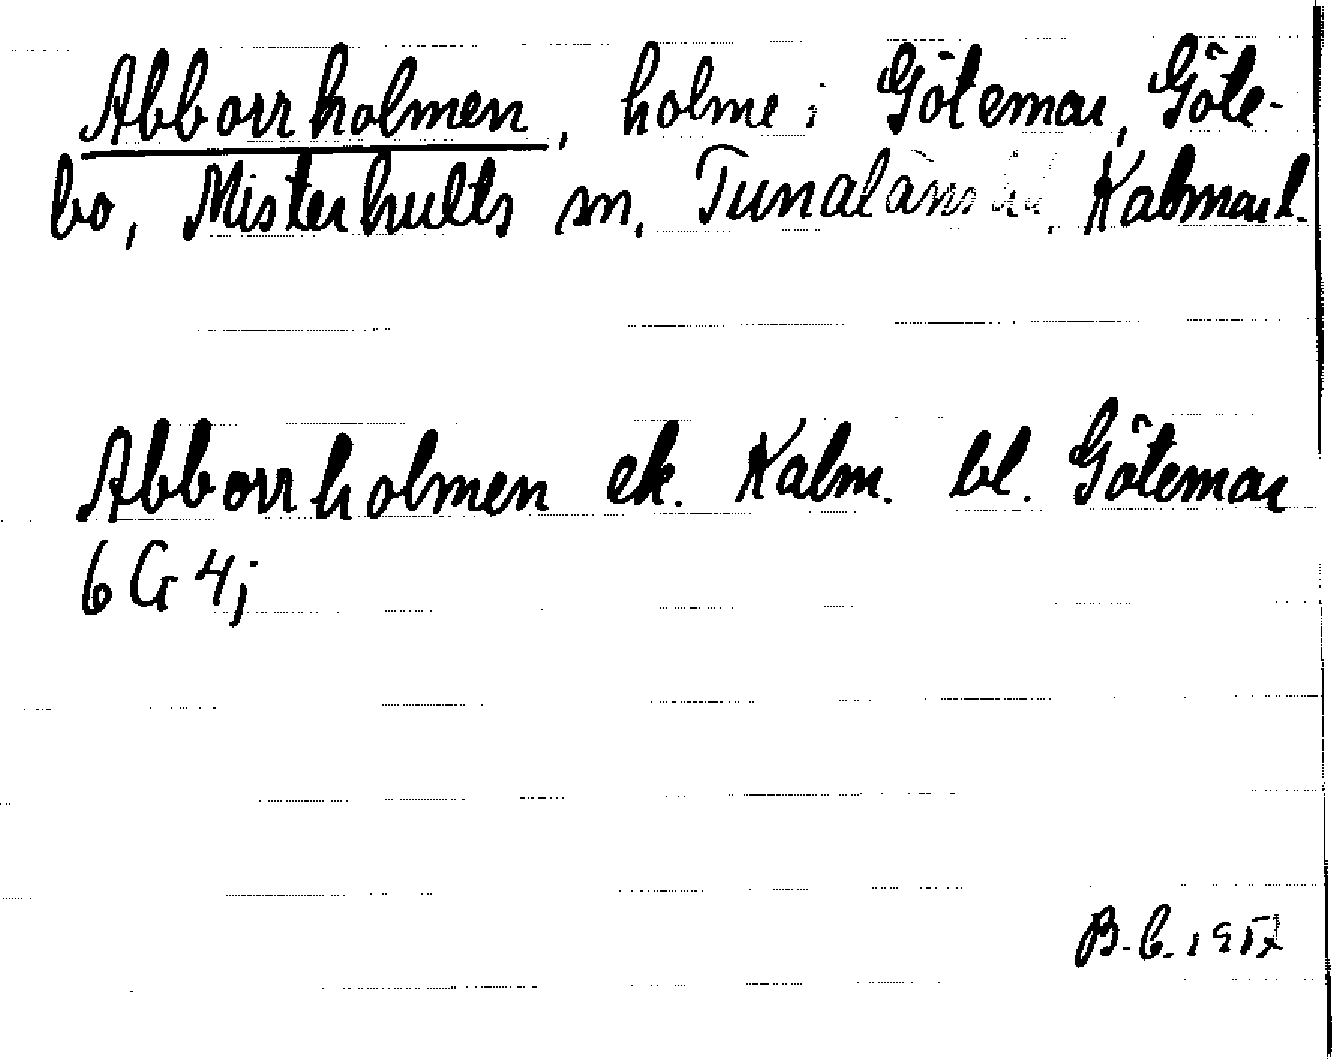 Abborrholmen, holme i Götemar, Göte-
bo, Misterhults sn, Tunaläns hd, Kalmar l.
Abborrholmen ek. Kalm. bl. Götemar
6 G 4j
B. G. 1952